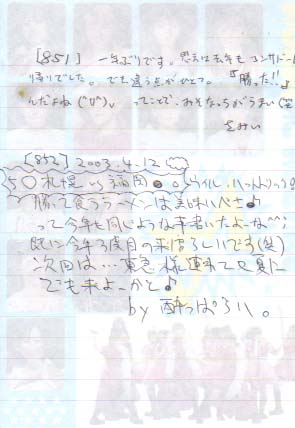 [851] 一年ぶりです。思えば去年もコンサドーレ
帰りでした。でも違う点がひとつ。「勝った!!」
んだよね(^▽^)v ってことで、おそなっちがうまい(笑)
をみい
[852] 2003.4.12
5○札幌 vs 福岡●0
勝って食うラーメンは美味いべさ♪
って今年も同じような事書いたよーな^^;
既に今年3度目の来店らしいです(笑)
次回は…東急 様 連れて 夏に
でも来よーかと♪
by 酔っぱらい。